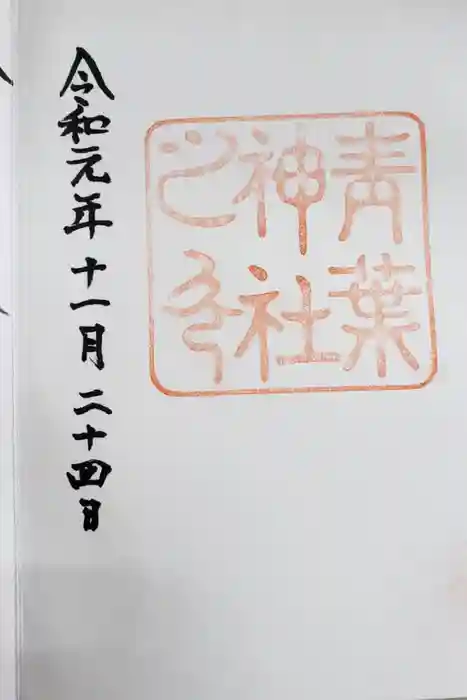 青葉
神社
之印
令和元年十一月二十四日